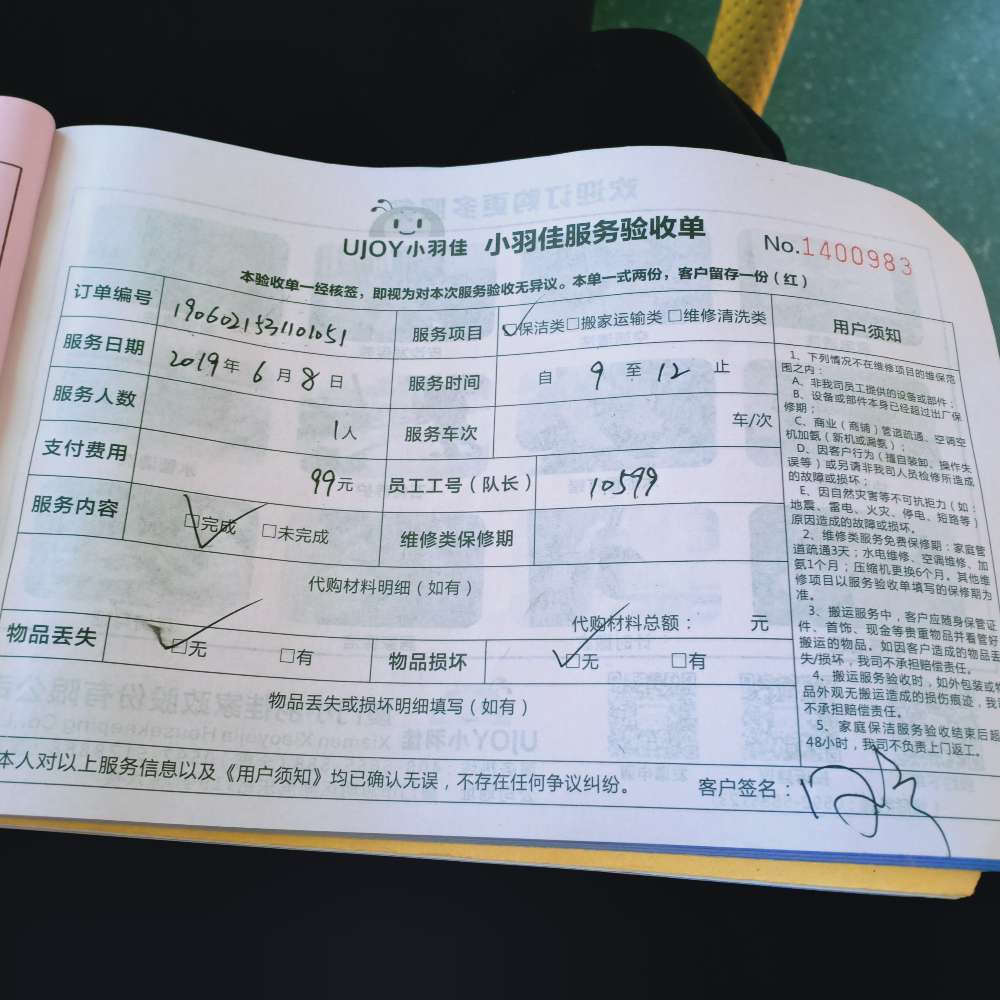 UJOY小羽佳 小羽佳服务验收单 No.1400983
本验收单一经核签，即视为对本次服务验收无异议。本单一式两份，客户留存一份（红）
订单编号 1906021531101051 服务项目 □保洁类□搬家运输类□维修清洗类
服务日期 2019年6月8日 服务时间 自 9 至 12 止
服务人数 1人 服务车次 车/次
支付费用 99元 员工工号（队长） 10599
服务内容 □完成 □未完成 维修类保修期
代购材料明细（如有）
代购材料总额： 元
物品丢失 □无 □有 物品损坏 □无 □有
物品丢失或损坏明细填写（如有）
用户须知
1、下列情况不在维修项目的维保范
围之内：
A、非我司员工提供的设备或部件；
B、设备或部件本身已经超过出厂保
修期；
C、商业（商铺）管道疏通、空调空
机加氨（新机或漏氨）；
D、因客户行为（擅自装卸、操作失
误等）或另请非我司人员检修所造成
的故障或损坏；
E、因自然灾害等不可抗拒力（如：
地震、雷电、火灾、停电、短路等）
原因造成的故障或损坏。
2、维修类服务免费保修期：家庭管
道疏通3天；水电维修、空调维修、加
氨1个月；压缩机更换6个月。其他维
修项目以服务验收单填写的保修期为
准。
3、搬运服务中，客户应随身保管证
件、首饰、现金等贵重物品并看管好
搬运的物品。如因客户造成的物品丢
失/损坏，我司不承担赔偿责任。
4、搬运服务验收时，如外包装或物
品外观无搬运造成的损伤痕迹，我司
不承担赔偿责任。
5、家庭保洁服务验收结束后超
48小时，我司不负责上门返工。
本人对以上服务信息以及《用户须知》均已确认无误，不存在任何争议纠纷。 客户签名：